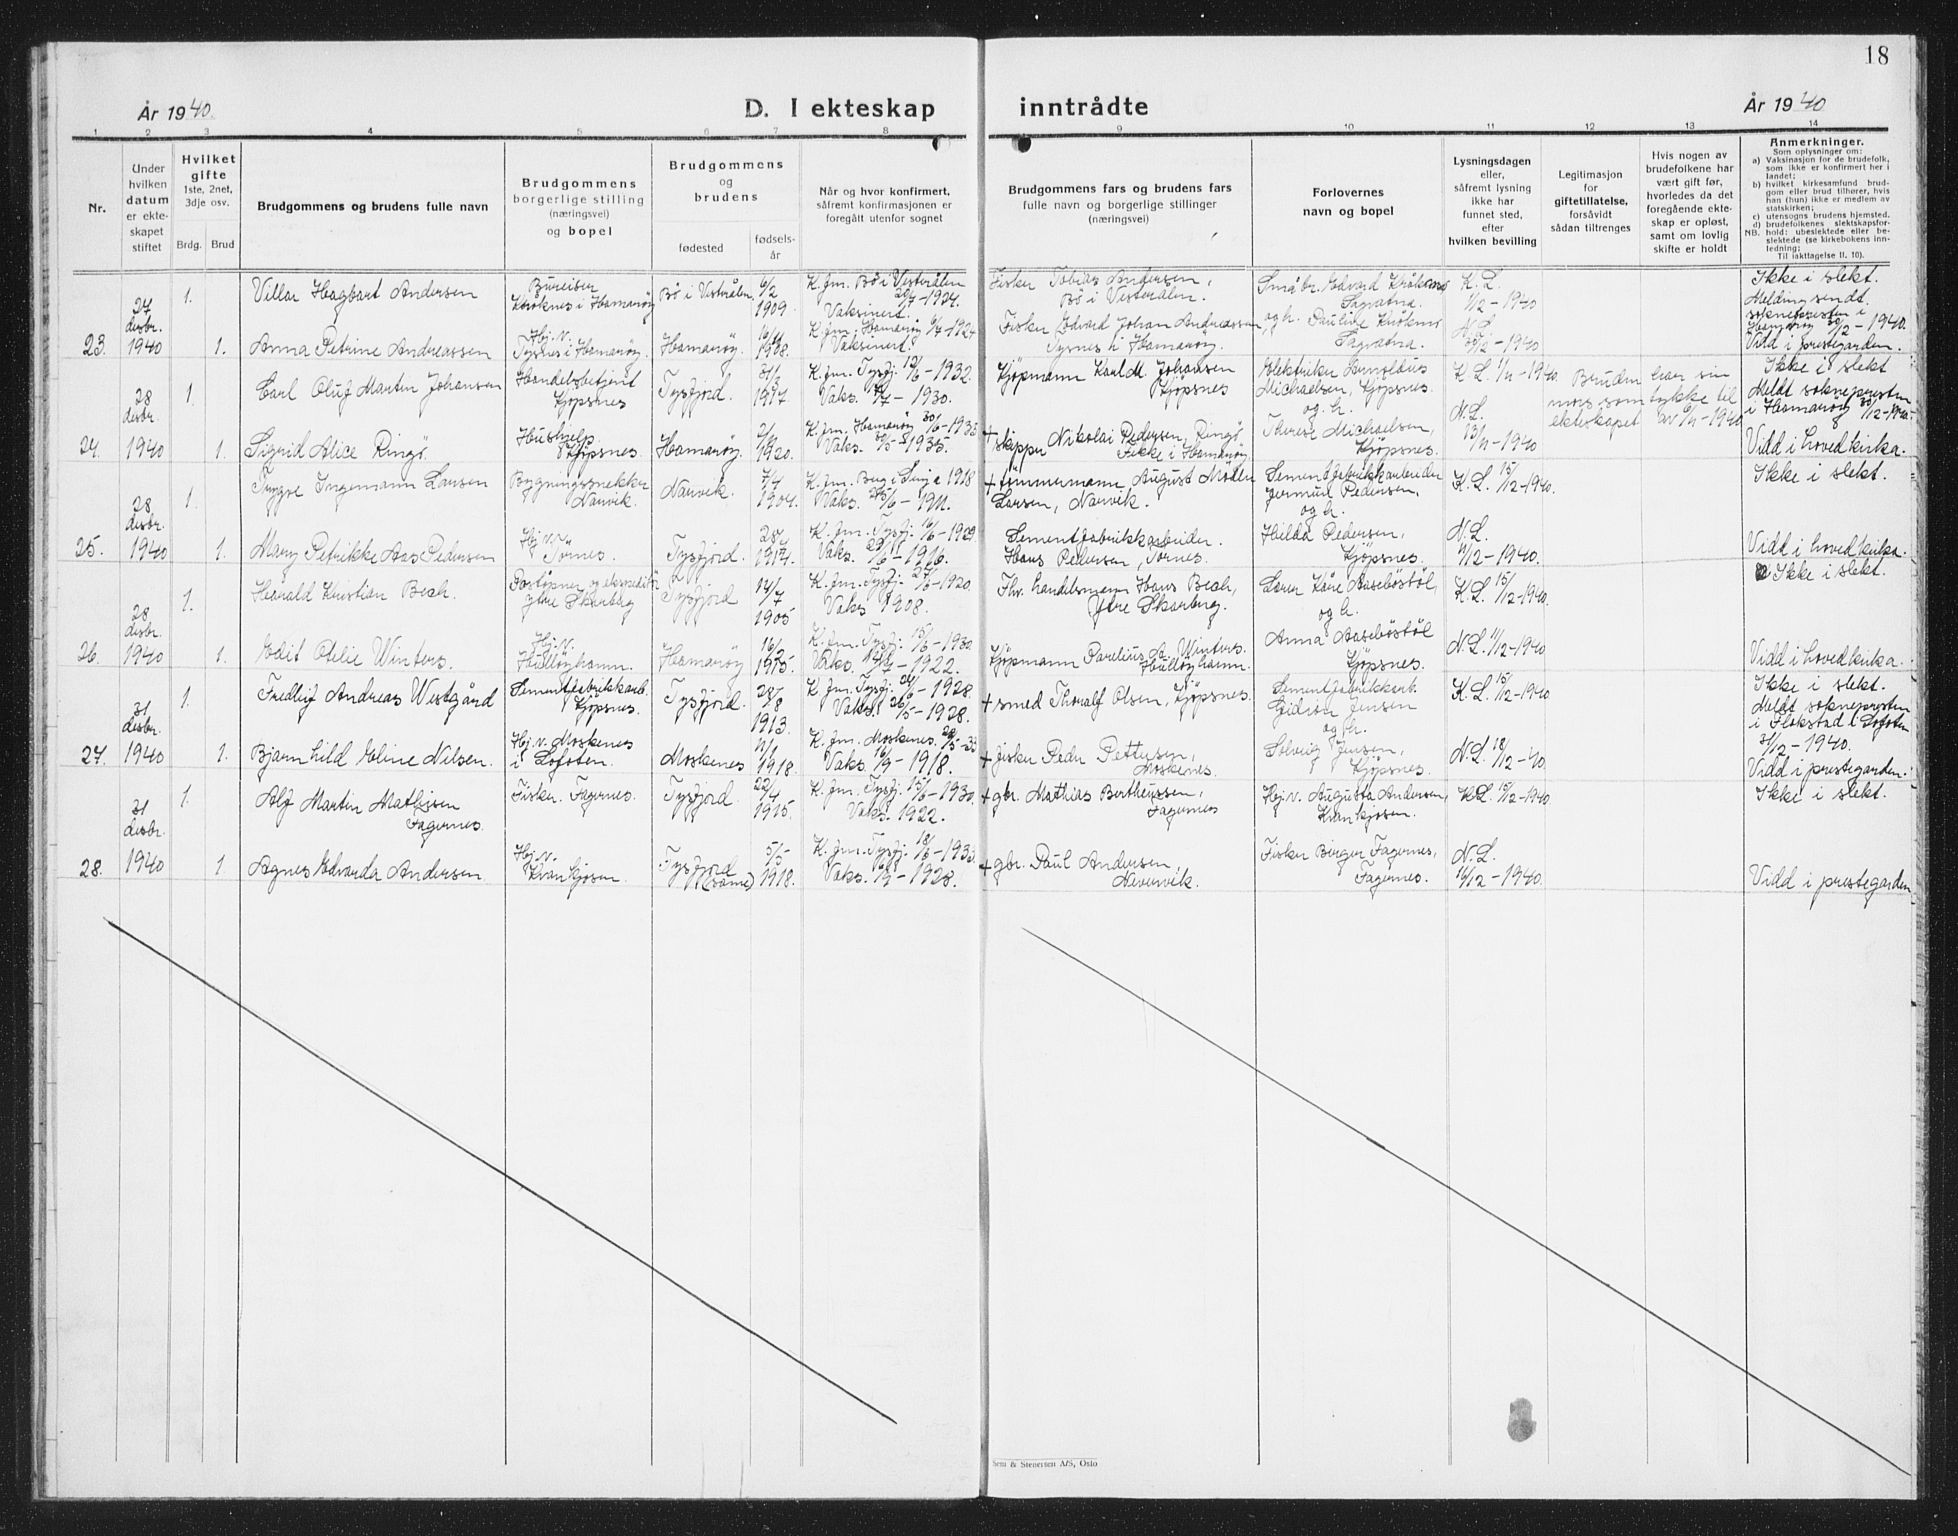 18
År 1940.
D. I ekteskap
inntrådte
År 1940
1 2 3 4 5 6 7 8 9 10 11 12 13 14
Nr.
Under
hvilken
datum
er ekte-
skapet
stiftet
Hvilket
gifte
1ste, 2net,
3dje osv.
Brdg. Brud
Brudgommens og brudens fulle navn
Brudgommens
borgerlige stilling
(næringsvei)
og bopel
Brudgommens
og
brudens
fødested
fødsels-
år
Når og hvor konfirmert,
såfremt konfirmasjonen er
foregått utenfor sognet
Brudgommens fars og brudens fars
fulle navn og borgerlige stillinger
(næringsvei)
Forlovernes
navn og bopel
Lysningsdagen
eller,
såfremt lysning
ikke har
funnet sted,
efter
hvilken bevilling
Legitimasjon
for
giftetillatelse,
forsåvidt
sådan tiltrenges
Hvis nogen av
brudefolkene har
vært gift før,
hvorledes da det
foregående ekte-
skap er opløst,
samt om lovlig
skifte er holdt
Anmerkninger.
Som oplysninger om:
a) Vaksinasjon for de brudefolk,
som ikke er konfirmert her i
landet;
b) hvilket kirkesamfund brud-
gom eller brud tilhører, hvis
han (hun) ikke er medlem av
statskirken;
c) utensogns brudens hjemsted.
d) brudefolkenes slektskapsfor-
NB. hold: ubeslektede eller be-
slektede (se kirkebokens inn-
ledning;
Til iakttagelse ll. 10).
23.
27
desbr.
1940
1.
Villar Hagbart Andersen
Bureiser
Kråknes i Hamarøy
Bö i Vesterålen
6/2
1909
K. fm. Bö i Vesterålen
20/7-1924.
Vaksinert.
Fisker Tobias Andersen,
Bö i Vesterålen.
Småbr. Edvard Kråknes
Sagvatna.
K. L.
1/12-1940
Ikke i slekt.
Melding sendt
soknepresten i
Hamarøy 30/12-1940.
1.
Anna Petrine Andreassen
Hj. v.
Tysnes i Hamarøy.
Hamarøy.
1908.
K. fm. Hamarøy 6/7-1924
Vaksinert.
Fisker Edvard Johan Andreassen,
Tysnes i Hamarøy.
og h. Pauline Kråknes
Sagvatna.
N. L.
Vidd i prestegarden.
24.
28
desbr.
1940
1.
Carl Oluf Martin Johansen
Handelsbetjent
Kjöpsnes
Tysfjord.
1917.
K. fm. Tysfj. 12/6-1932.
Vaks. 1930.
Kjöpmann Karl M. Johansen
Kjöpsnes
Elektriker Arnoldus
Michaelsen, Kjöpsnes.
og h.
K. L. 1/11-1940.
Bruden har sin
mors samtykke til
ekteskapet av 6/11-1940
Ikke i slekt
Meldt soknepresten
i Hamarøy 30/12-1940.
1.
Sigrid Alice Ringö.
Hushjelp
Kjöpsnes.
Hamarøy.
1920.
K. fm. Hamarøy 30/6-1935
Vaks. 1935.
+ skipper Nikolai Pedersen Ringö,
i Hamarøy.
Therese Michaelsen,
Kjöpsnes.
N. L.
13/11-1940
Vidd i hovedkirka.
25.
28
desbr.
1940
1.
Trygve Ingemann Larsen
Bygningssnekker
Narvik.
Narvik.
7/4
1904.
K. fm. Berg i Senja 1918
Vaks. 1911.
+ tömmermann August Möller
Larsen, Narvik.
Sementfabrikkarbeider
Germud Pedersen,
og h.
K. L. 15/12-1940.
Ikke i slekt.
1.
Mary Petrikke Aas Pedersen
Hj. v.
Törnes.
Tysfjord.
1914.
K. fm. Tysfj. 16/6-1929
Vaks. 1916.
Sementfabrikkarbeider
Hans Pedersen, Törnes.
Hilda Pedersen,
Kjöpsnes.
N. L.
11/12-1940.
Vidd i hovedkirka.
26.
28
desbr.
1940
1.
Harald Kristian Bech.
Poståpner og ekspeditör
Ytre Skarberg
Tysfjord
14/7
1905
K. fm. Tysfj. 27/6-1920.
Vaks. 1908.
Fhv. handelsmann Hans Bech,
Ytre Skarberg.
Lærer Kåre Aasebøstöl,
og h.
K. L. 15/12-1940.
Ikke i slekt.
1.
Edit Otelie Winters.
Hj. v.
Hulløyhamn.
Hamarøy
1915.
K. fm. Tysfj. 15/6-1930.
Vaks. 1922.
Kjöpmann Parelius A. Winters.
Hulløyhamn.
Anna Aasebøstöl
Kjöpsnes.
N. L. 11/12-1940
Vidd i hovedkirka.
27.
31
desbr.
1940
1.
Fredleif Andreas Westgård
Sementfabrikkarb.
Kjöpsnes.
Tysfjord.
28/8
1913.
K. fm. Tysfj. 24/6-1928.
Vaks. 26/5-1928.
+ smed Thoralf Olsen, Kjöpsnes.
Sementfabrikkarb.
Gideon Jensen
og h.
K. L. 15/12-1940
Ikke i slekt.
Meldt soknepresten
i Flakstad i Lofoten
31/12-1940.
1.
Bjarnhild Eline Nilsen.
Hj. v. Moskenes
i Lofoten.
Moskenes
1918.
K. fm. Moskenes 28/5-33
Vaks. 16/9-1918.
+ fisker Peder Pettersen,
Moskenes.
Solveig Jensen,
Kjöpsnes.
N. L. 18/12-40.
Vidd i prestegarden.
28.
31
desbr.
1940
1.
Alf Martin Mathisen
Fagernes.
Fisker. Fagernes.
Tysfjord.
22/4
1915.
K. fm. Tysfj. 15/6-1930.
Vaks. 1922.
+ gbr. Mathias Bertheussen,
Fagernes
Hj. v. Augusta Andersen,
Krankjosen.
K. L. 15/12-1940.
Ikke i slekt.
1.
Agnes Edvarda Andersen.
Hj. v.
Krankjosen.
Tysfjord
(same)
5/5
1918.
K. fm. Tysfj. 18/6-1933.
Vaks. 1928.
+ gbr. Paul Andersen,
Nevervik.
Fisker Birger Fagernes,
Fagernes.
N. L.
16/12-1940.
Vidd i prestegarden
Sem & Stenersen A/S, Oslo